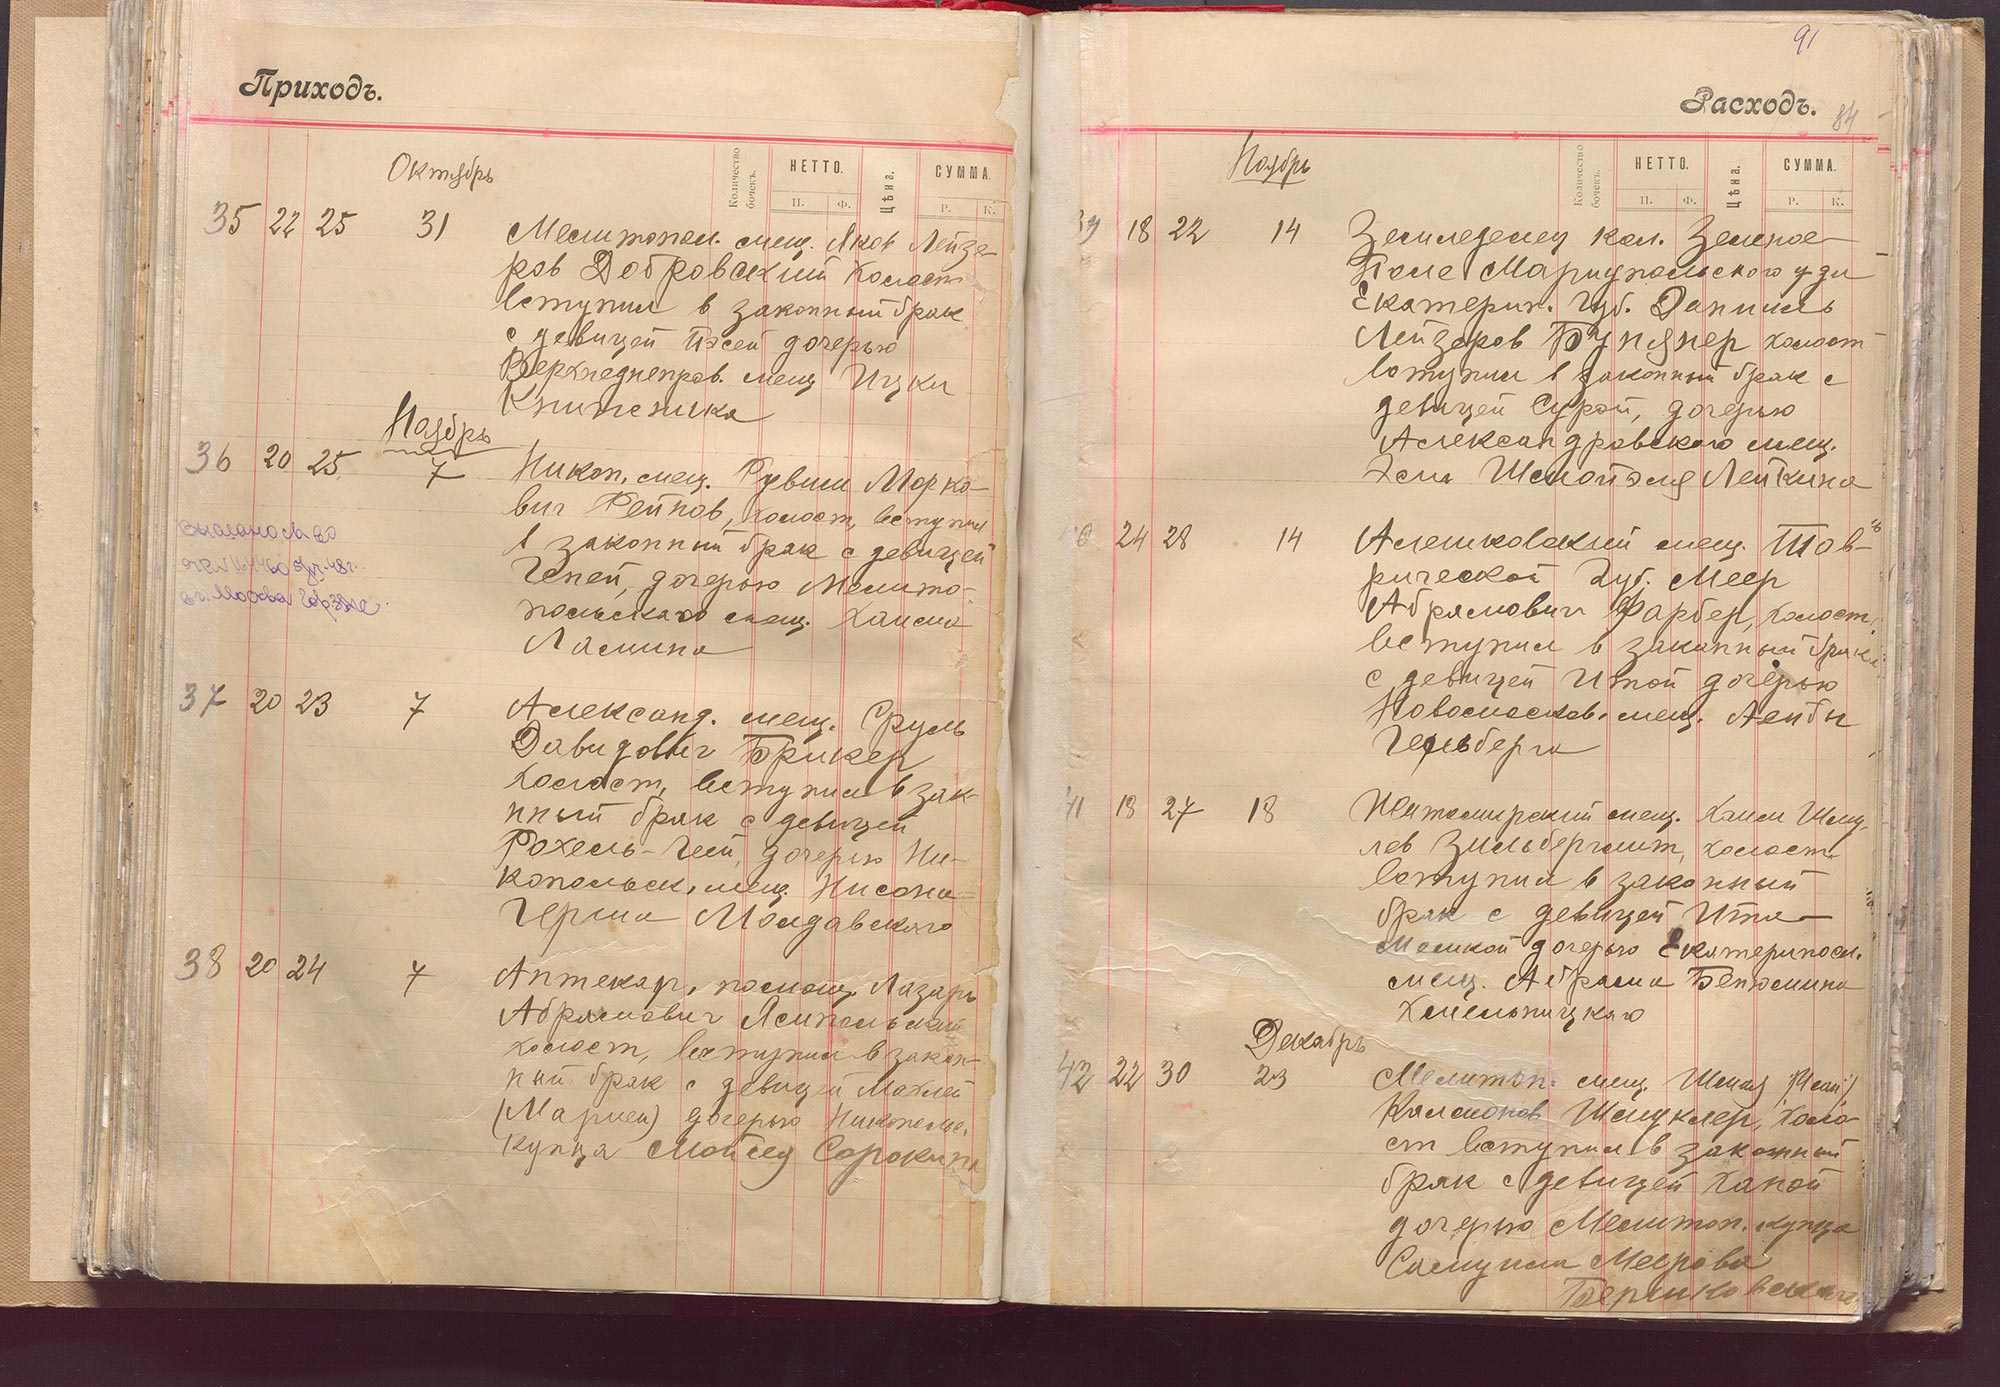 Приходъ.
Октябрь
Количество бочекъ.
НЕТТО.
П. Ф.
Цѣна.
СУММА.
Р. К.
35 22 25 31 Мелитопол. мещ. Яков Лейзе-
ров Добровский холост
вступил в законный брак
с девицей Песей дочерью
Верхнеднепров. мещ Ицки
Ноябрь
36 20 25 7 Никоп. мещ. Рувим Морко-
вич Рейнов, холост, вступил
в законный брак с девицей
Геней, дочерью Мелито-
польского мещ. Хаима
Ламина
37 20 23 7 Александ. мещ. Сруль
Давидович Брикер
холост, вступил в зак-
нный брак с девицей
Рохель-Геей, дочерью Ни-
копольск. мещ. Нисона
Герша Молдавского
38 20 24 7 Аптекар. помощ. Лазарь
Абрамович Ясипольский
холост, вступил в закон-
ный брак с девицей Махлей
(Марией) дочерью Никопольс.
купца Мойсея Сорокина
91
Расходъ.
84
Ноябрь
Количество бочекъ.
НЕТТО.
П. Ф.
Цѣна.
СУММА.
Р. К.
39 18 22 14 Земледелец кол. Зеленое
Поле Мариупольского у-да
Екатерин. Губ. Даниель
Лейзеров Бунянер холост
вступил в законный брак с
девицей Сурой, дочерью
Александровского мещ.
Хема Шмойэля Лейкина
40 24 28 14 Алешковский мещ. Тав-
рической Губ. Меер
Абрамович Фарбер, холост,
вступил в законный брак
с девицей Итой дочерью
Новомосков. мещ. Лейбы
Гельберга
41 18 27 18 Житомирский мещ. Хаим Шму-
лев Зильберглит, холост
вступил в законный
брак с девицей Ита-
Малкой дочерью Екатеринослав.
мещ. Абрама Бенюмина
Хмельницкого
Декабрь
42 22 30 23 Мелитоп. мещ. Шмая
Калмонов Шмуклер, холо-
ст вступил в законный
брак с девицей Ханой
дочерью Мелитоп. купца
Самуила Меерова
Бериковского